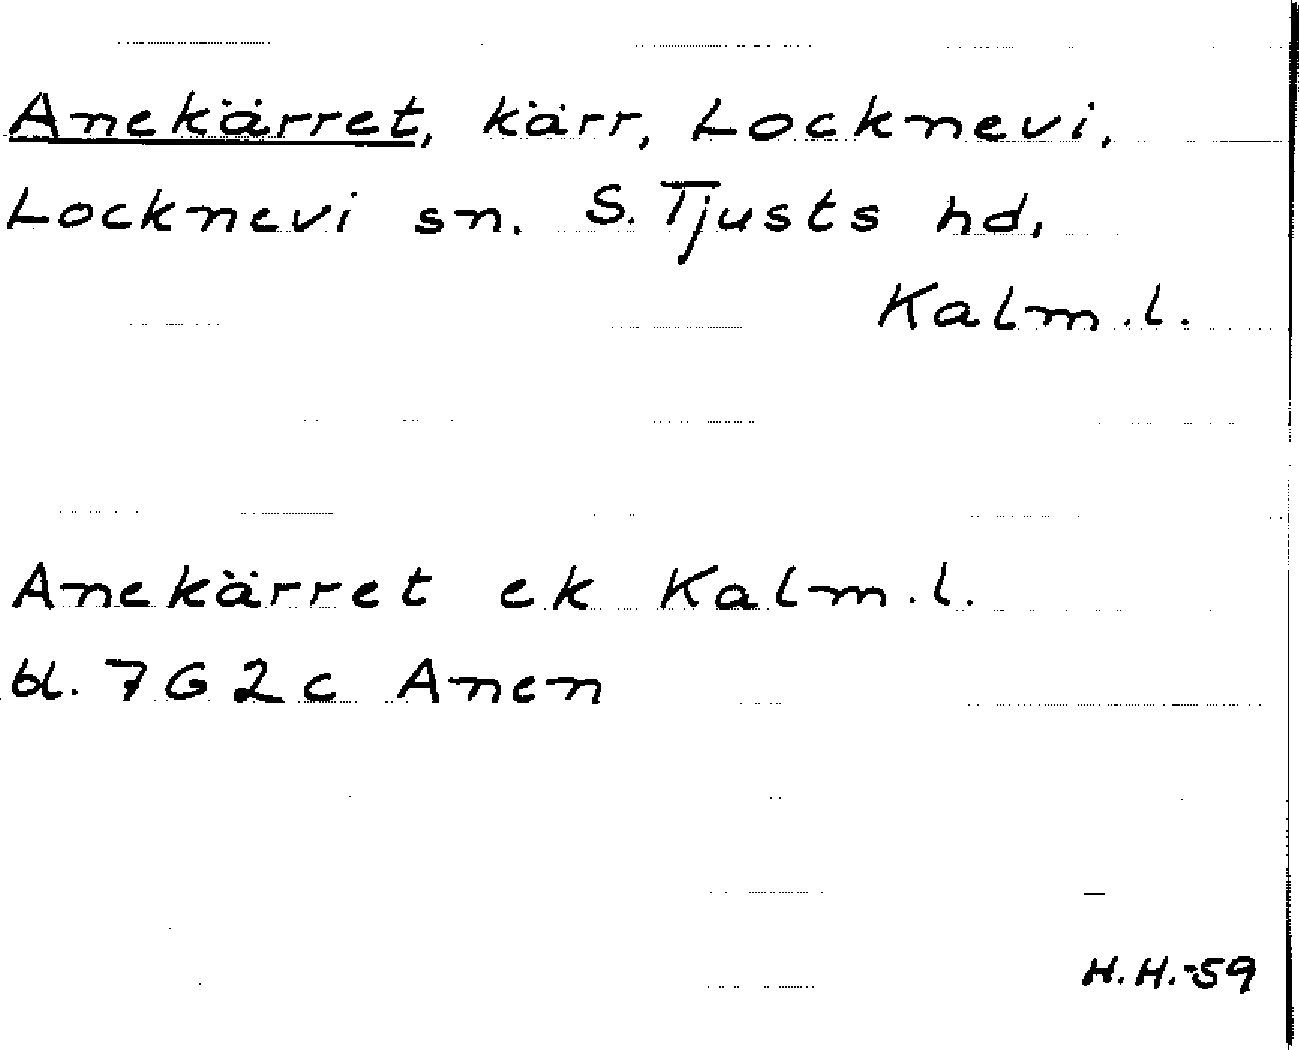 Anekärret, kärr, Locknevi,
Locknevi sn. S. Tjusts hd,
Kalm.l.
Anekärret ek Kalm.l.
bl. 7 G 2 c Anen
H.H.-59